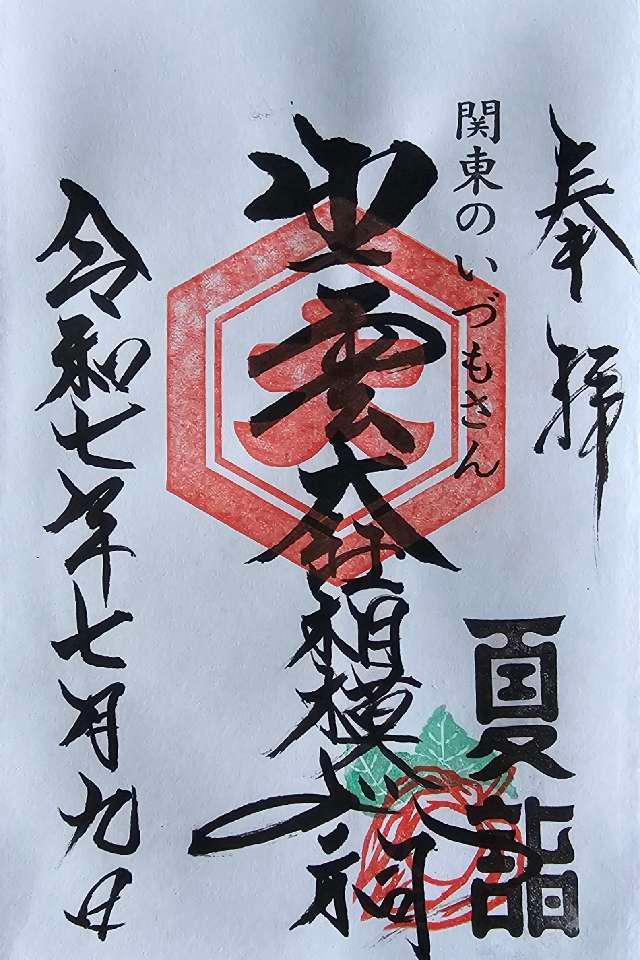 奉拝
関東のいづもさん
出雲大社相模分祠
夏詣
令和七年七月九日